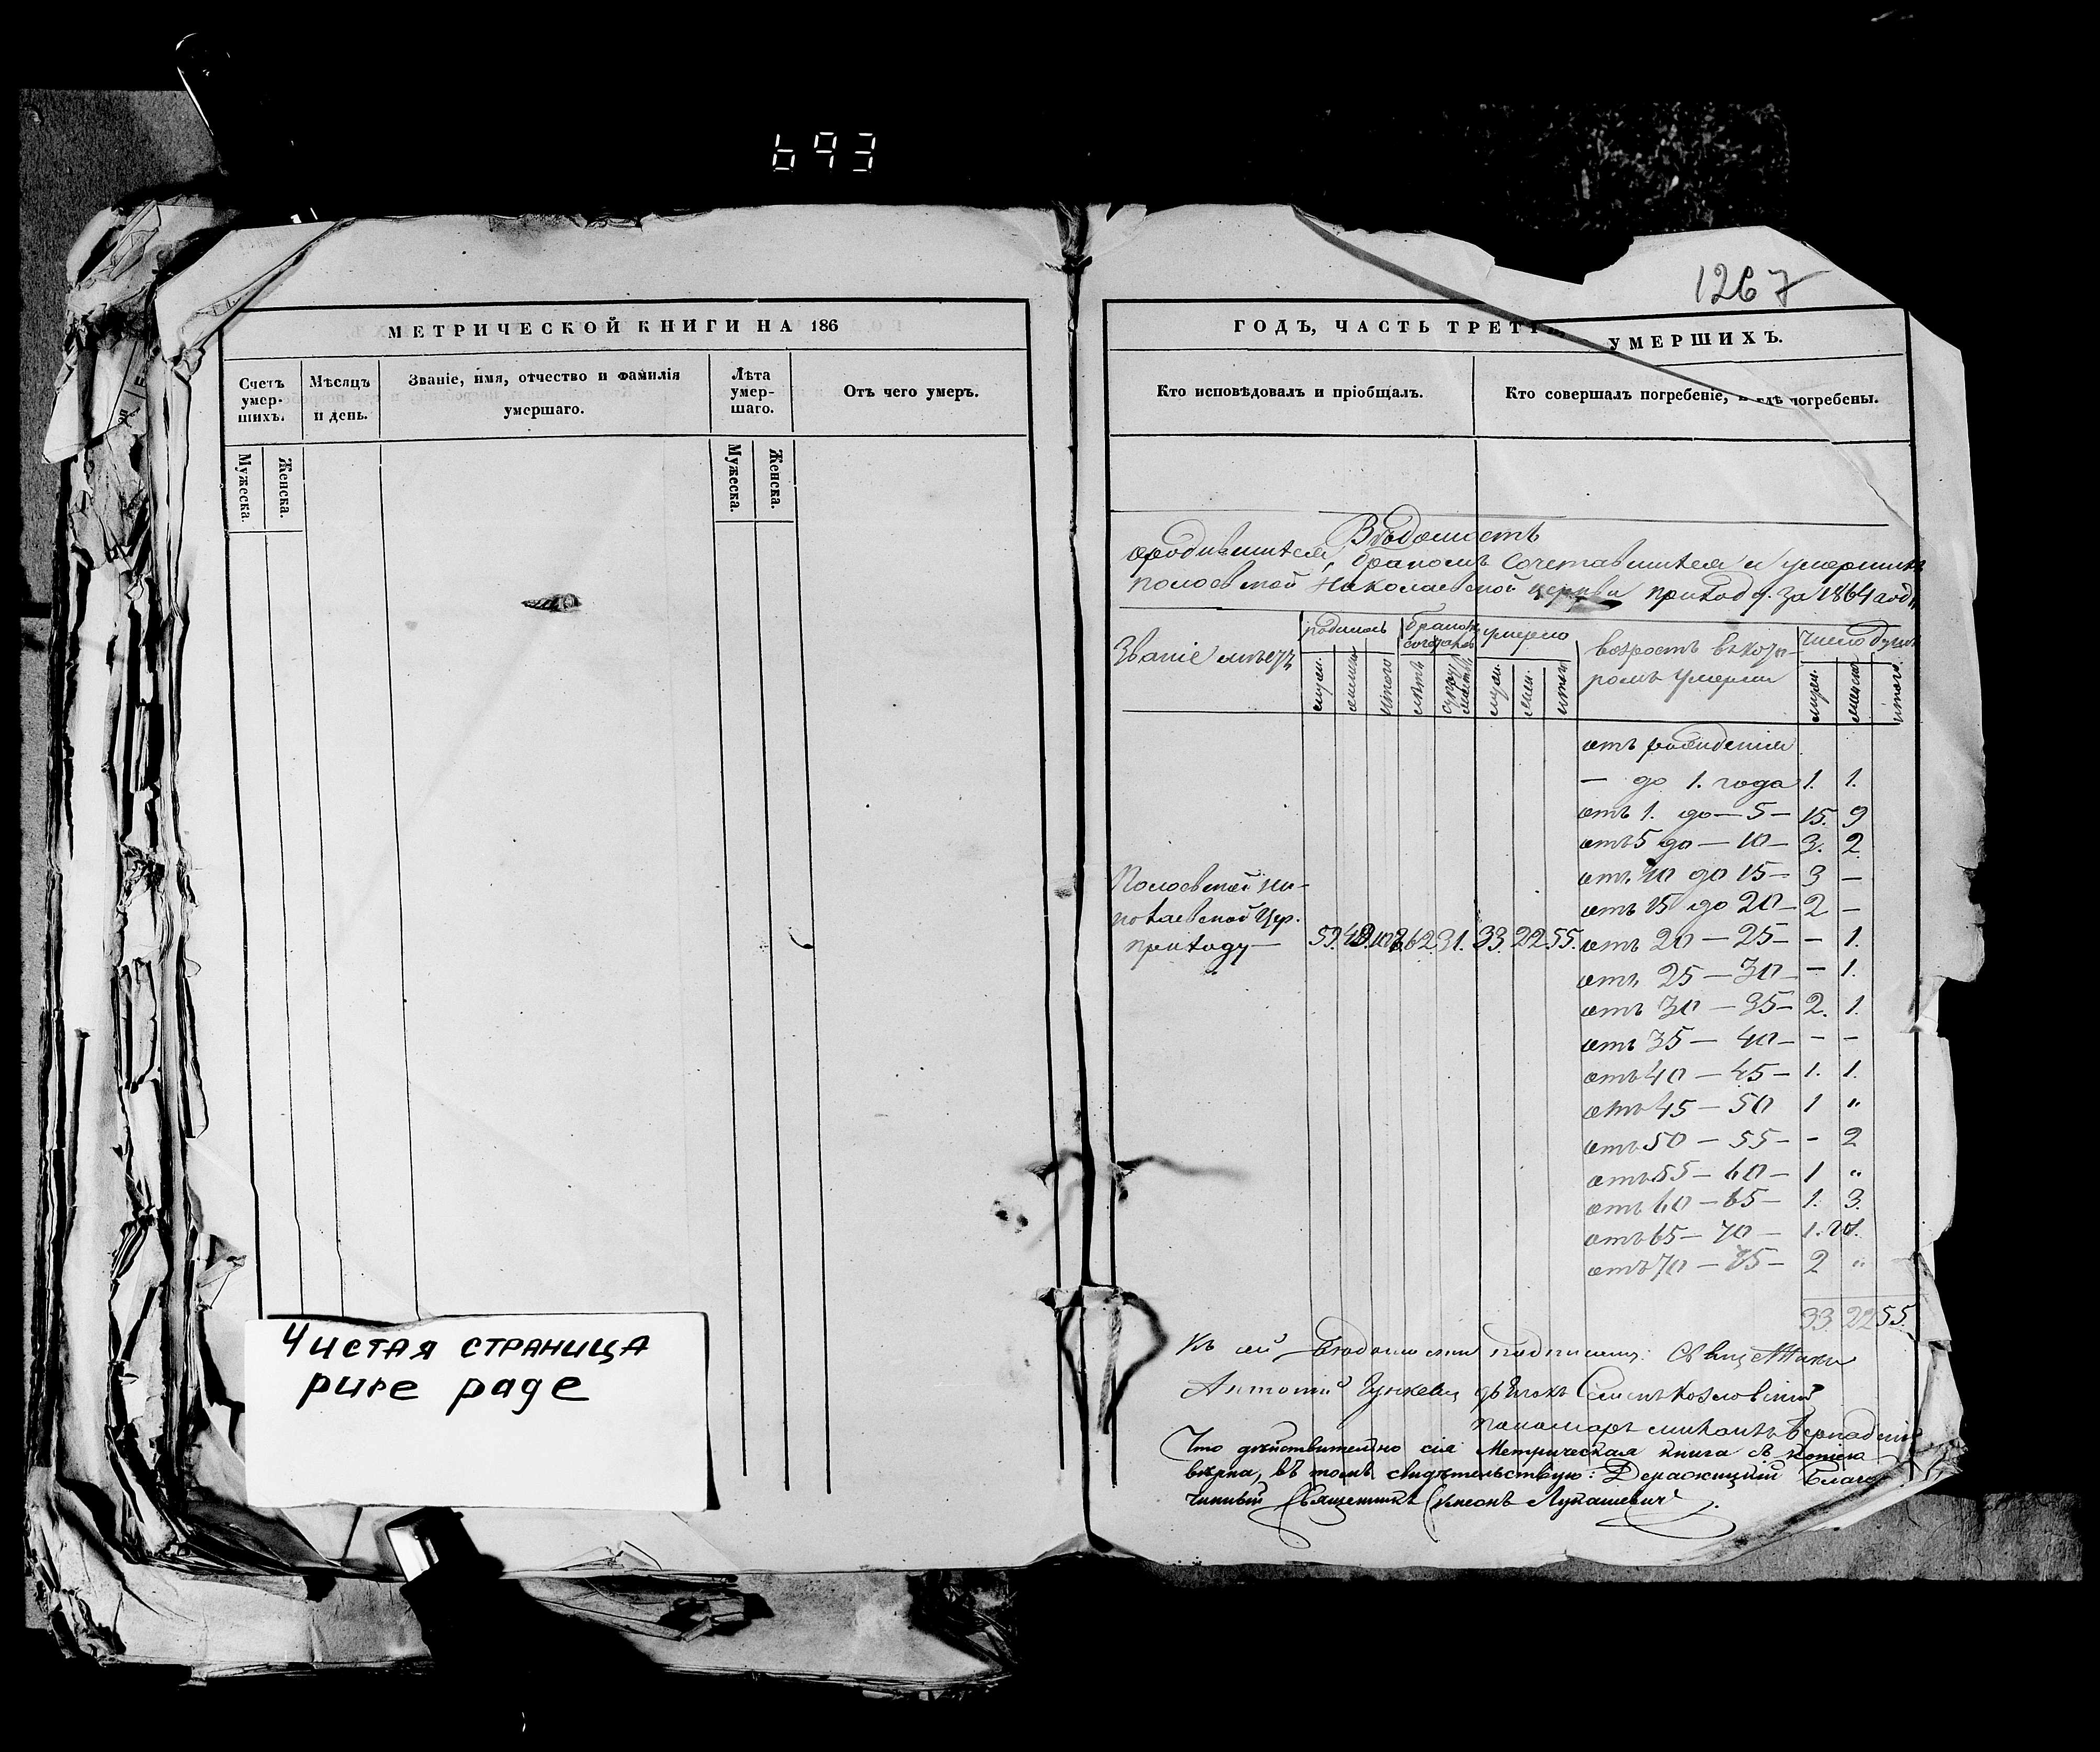 693
МЕТРИЧЕСКОЙ КНИГИ НА 186
Счетъ умер-шихъ.
Мѣсяцъ и день.
Званіе, имя, отчество и фамилія умершаго.
Лѣта умер-шаго.
Отъ чего умеръ.
Мужеска.
Женска.
Мужеска.
Женска.
Чистая страница
pure page
1267
ГОДЪ, ЧАСТЬ ТРЕТІ
УМЕРШИХЪ.
Кто исповѣдовалъ и пріобщалъ.
Кто совершалъ погребеніе, и гдѣ погребены.
Вѣдомость
о родившихся, бракомъ сочетавшихся и умершихъ
Николаевской церкви приход за 1864 годъ
Званіе мѣстъ
родилось
бракомъ
умерло
возрастъ въ кото-
ромъ умерли
число душъ
муж.
женск
итого
муж.
жен.
итого
муж.
женск
итого
отъ рожденія
— до 1. года 1. 1.
отъ 1. до — 5 — 15. 9
отъ 5 до — 10 — 3. 2.
отъ 10 до 15 — 3 —
отъ 15 до 20 — 2 —
Ни-
колаевской Цер.
приходу — 59. 62 31. 33. 22 55. отъ 20 — 25 — – 1.
отъ 25 — 30 — 1.
отъ 30 — 35 — 2. 1.
отъ 35 — 40 — – –
отъ 40 — 45 — 1. 1.
отъ 45 — 50 1 "
отъ 50 — 55 — – 2
отъ 55 — 60 — 1 "
отъ 60 — 65 — 1. 3.
отъ 65 — 70 — 1. 1.
отъ 70 — 75 — 2 "
33 22 55.
Къ сей вѣдомости подписались: Священникъ
Антоній дьячокъ Козловскій
пономарь
Что дѣйствительно сія Метрическая книга съ копіею
вѣрна, въ томъ свидѣтельствую: Благо-
чинный Священникъ Симеонъ Лупашевичъ.